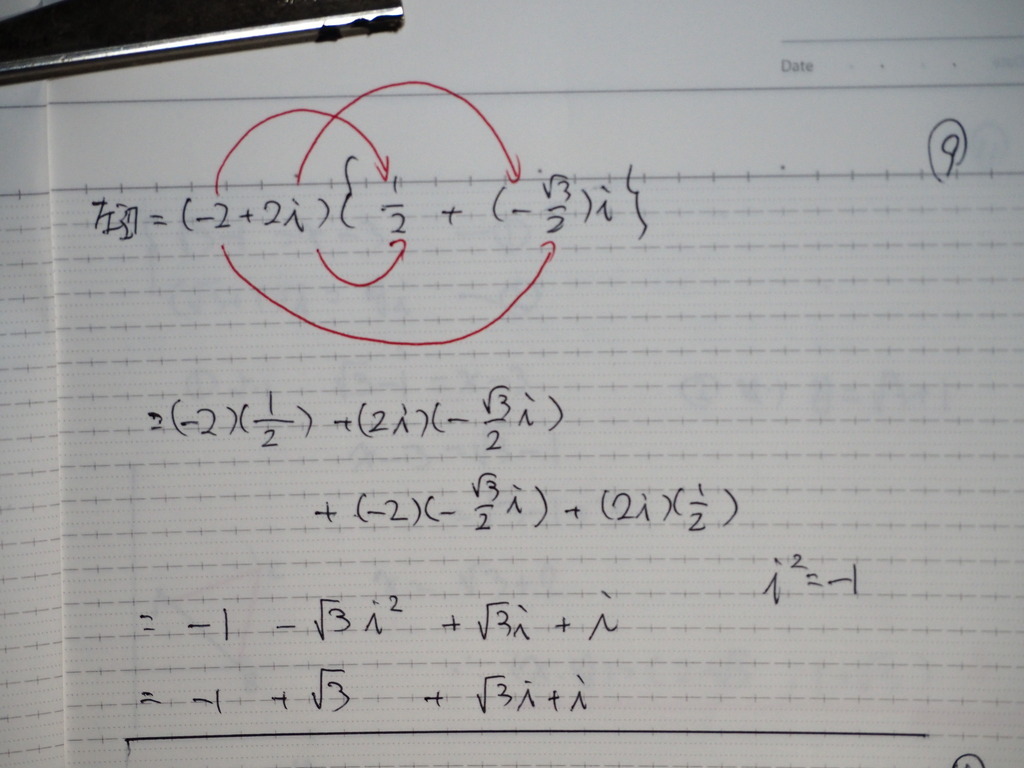 Date
⑨
左辺 = (-2+2i){ 1/2 + (-√3/2)i }
= (-2)(1/2) + (2i)(-√3/2 i)
+ (-2)(-√3/2 i) + (2i)(1/2)
i² = -1
= -1 - √3 i² + √3i + i
= -1 + √3 + √3i + i